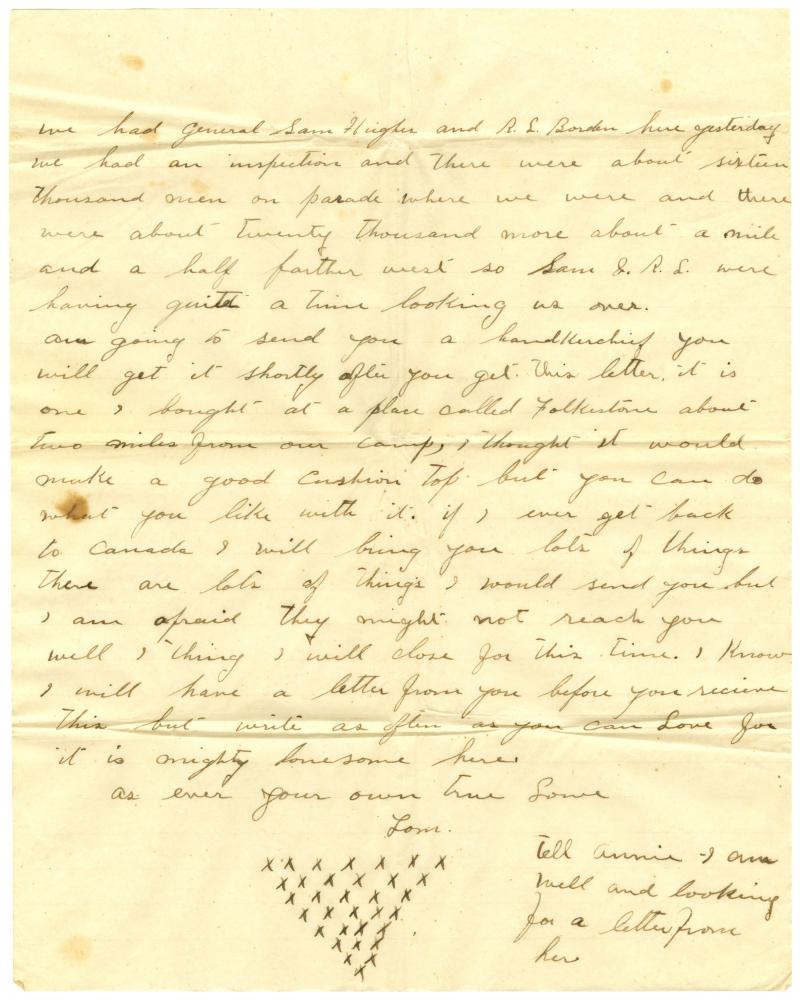 we had General Sam Hughes and R. L. Borden here yesterday
we had an inspection and there were about sixteen
thousand men on parade where we were and there
were about twenty thousand more about a mile
and a half farther west so Sam & R. L. were
having quite a time looking us over.
am going to send you a handkerchief you
will get it shortly after you get this letter. it is
one I bought at a place called Folkestone about
two miles from our camp, I thought it would
make a good cushion top but you can do
what you like with it. if I ever get back
to Canada I will bring you lots of things
there are lots of things I would send you but
I am afraid they might not reach you
well I thing I will close for this time. I Know
I will have a letter from you before you recieve
this but write as often as you can Love for
it is mighty lonesome here.
as ever your own true Love
Tom.
x x x x x x x
x x x x x x
x x x x x
x x x x x
x x x x
x x x
x x
x
tell Annie I am
well and looking
for a letter from
her